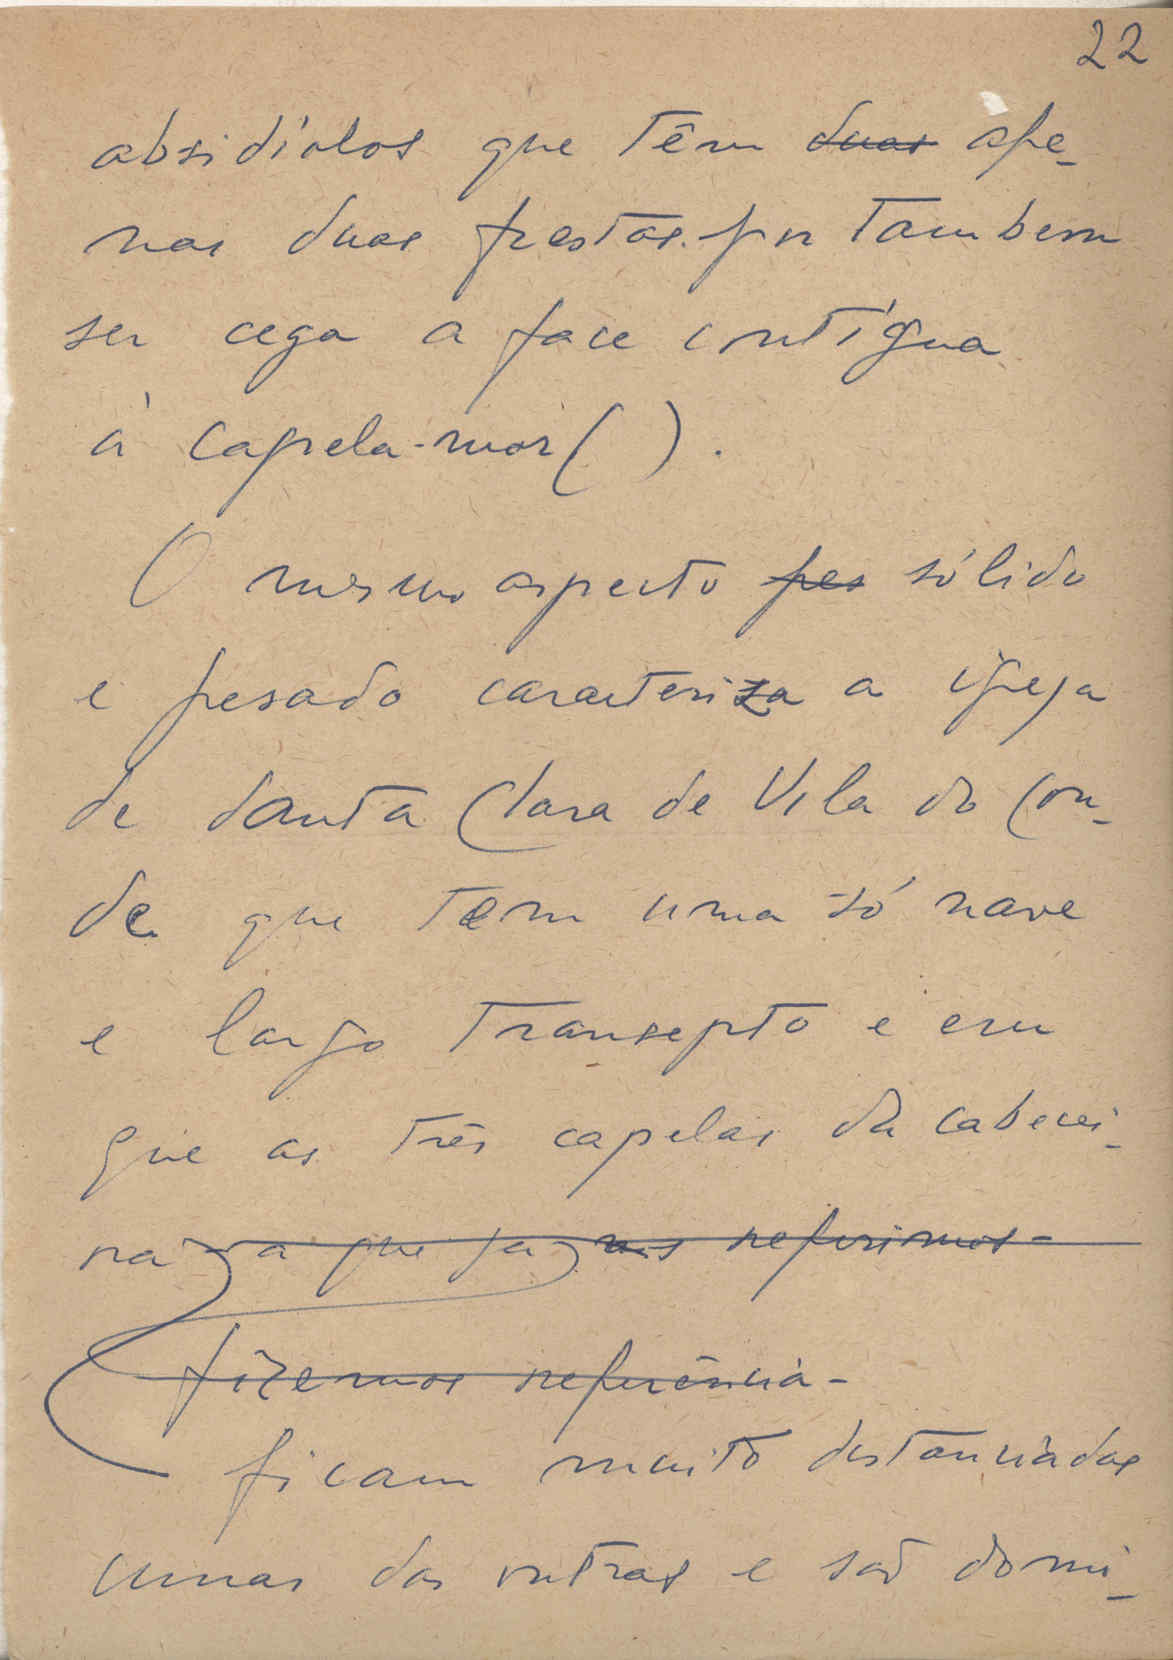 22
absidíolos que têm duas ape-
nas duas frestas por tambem
ser cega a face contígua
à capela-mor ( ).
O mesmo aspecto pes sólido
e pesado caracteriza a igreja
de Santa Clara de Vila do Con-
de que tem uma só nave
e largo transepto e em
que as três capelas da cabecei-
ra - a que já nos referimos -
fizemos referência -
ficam muito distanciadas
umas das outras e são domi-